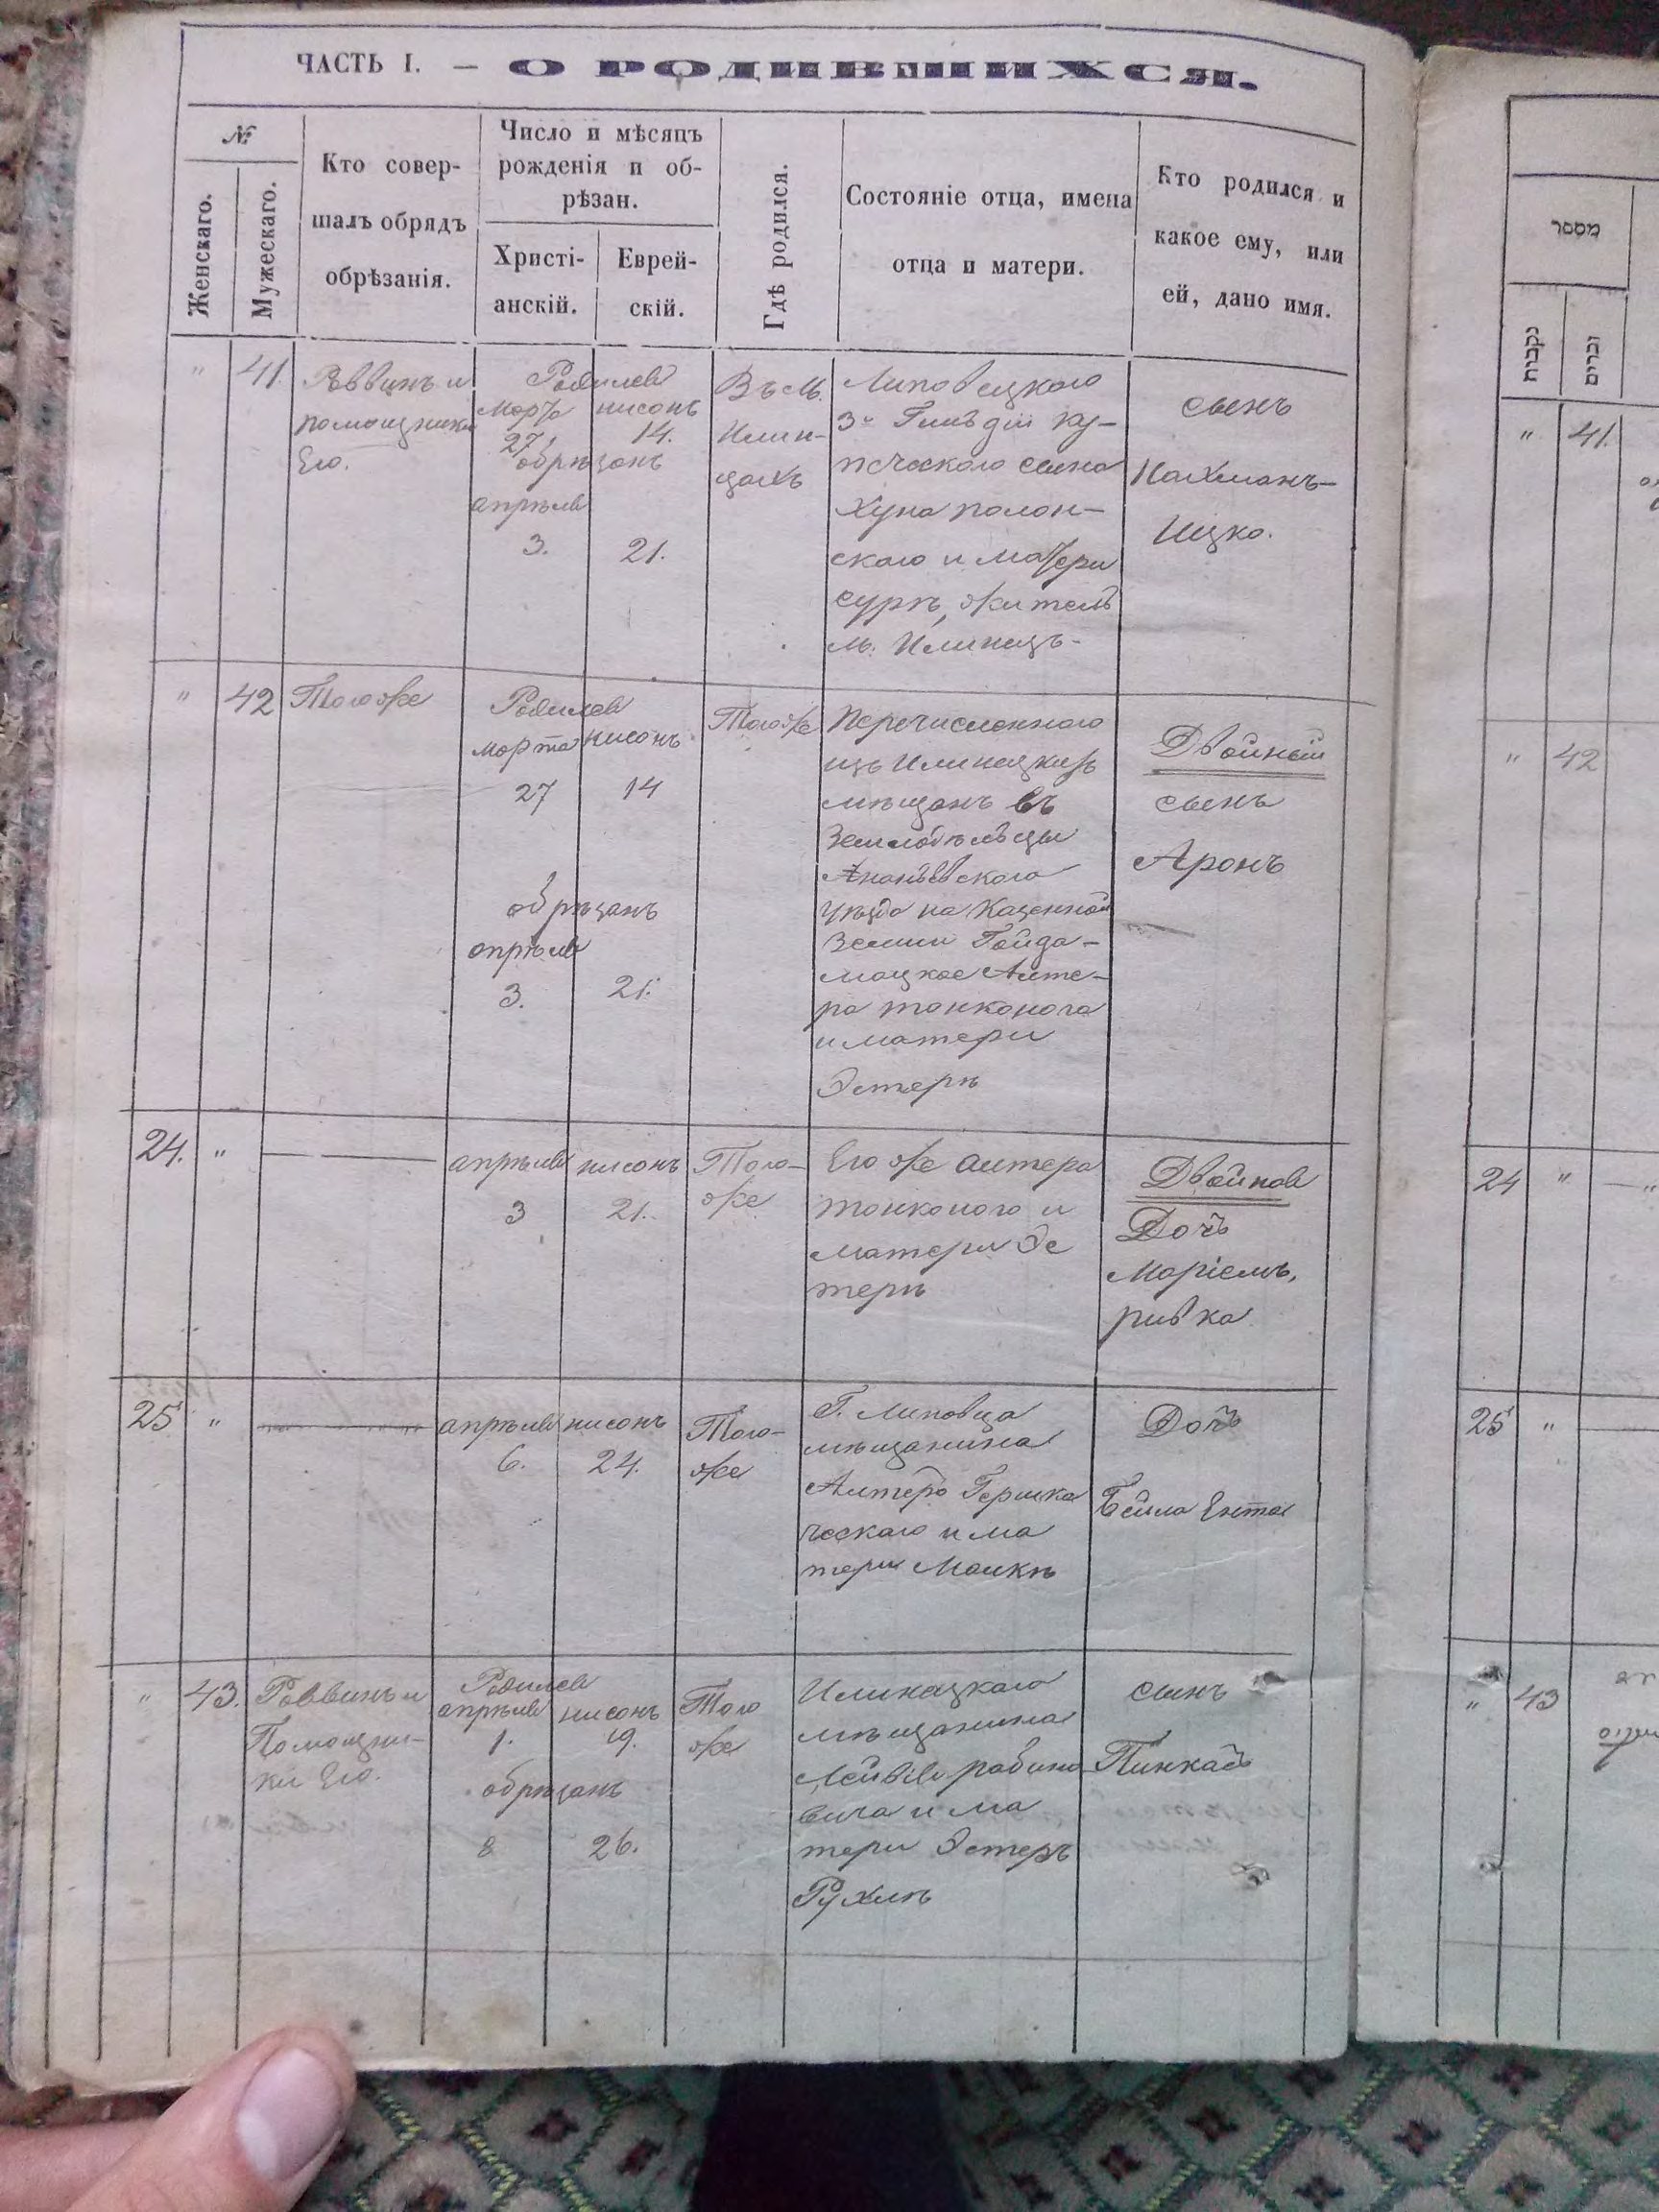 ЧАСТЬ I. — О РОДИВШИХСЯ.
№
Женскаго.
Мужескаго.
Кто совер-
шалъ обрядъ
обрѣзанія.
Число и мѣсяцъ
рожденія и об-
рѣзан.
Христі-
анскій.
Еврей-
скій.
Гдѣ родился.
Состояніе отца, имена
отца и матери.
Кто родился и
какое ему, или
ей, дано имя.
" 41.
Раввинъ и
помощники
Его.
Родился
Марта нисонъ
27, 14.
обрѣзанъ
апрѣля
3. 21.
Въ м.
Илин-
цахъ
Липовецкаго
3й Гильдіи ку-
печескаго сына
Хуна полон-
скаго и матери
Суры, житель
м. Илинецъ-
сынъ
Нахманъ-
Ицко.
" 42
Тогоже
Родился
марта нисонъ
27 14
обрѣзанъ
апрѣля
3. 21.
Тогоже
Перечисленнаго
изъ Илинецкихъ
мѣщанъ въ
Земледѣльцы
Ананьевскаго
уѣзда на Казенной
Земли Гайда-
мацкое Алте-
ра тонконога
и матери
Эстеры
Двойный
сынъ
Аронъ
24. "
апрѣля нисонъ
3 21.
Того-
же
Его же Алтера
тонконого и
матери Эс
теры
Двойная
Дочь
Маріемъ,
ривка
25 "
апрѣля нисонъ
6. 24.
Того-
же
Г. Липовца
мѣщанина
Алтера
и ма
тери Малкѣ
Дочь
Бейла Ента
" 43.
Раввинъ и
Помощни-
ки Его.
Родился
апрѣля нисонъ
1. 19.
обрѣзанъ
8 26.
Того
же
Илинецкаго
мѣщанина
Лейви рабино
вича и ма
тери Эстеръ
Рухлѣ
сынъ
Пинкасъ
מספר
נקבות
זכרים
" 41.
" 42
24 "
25 "
" 43